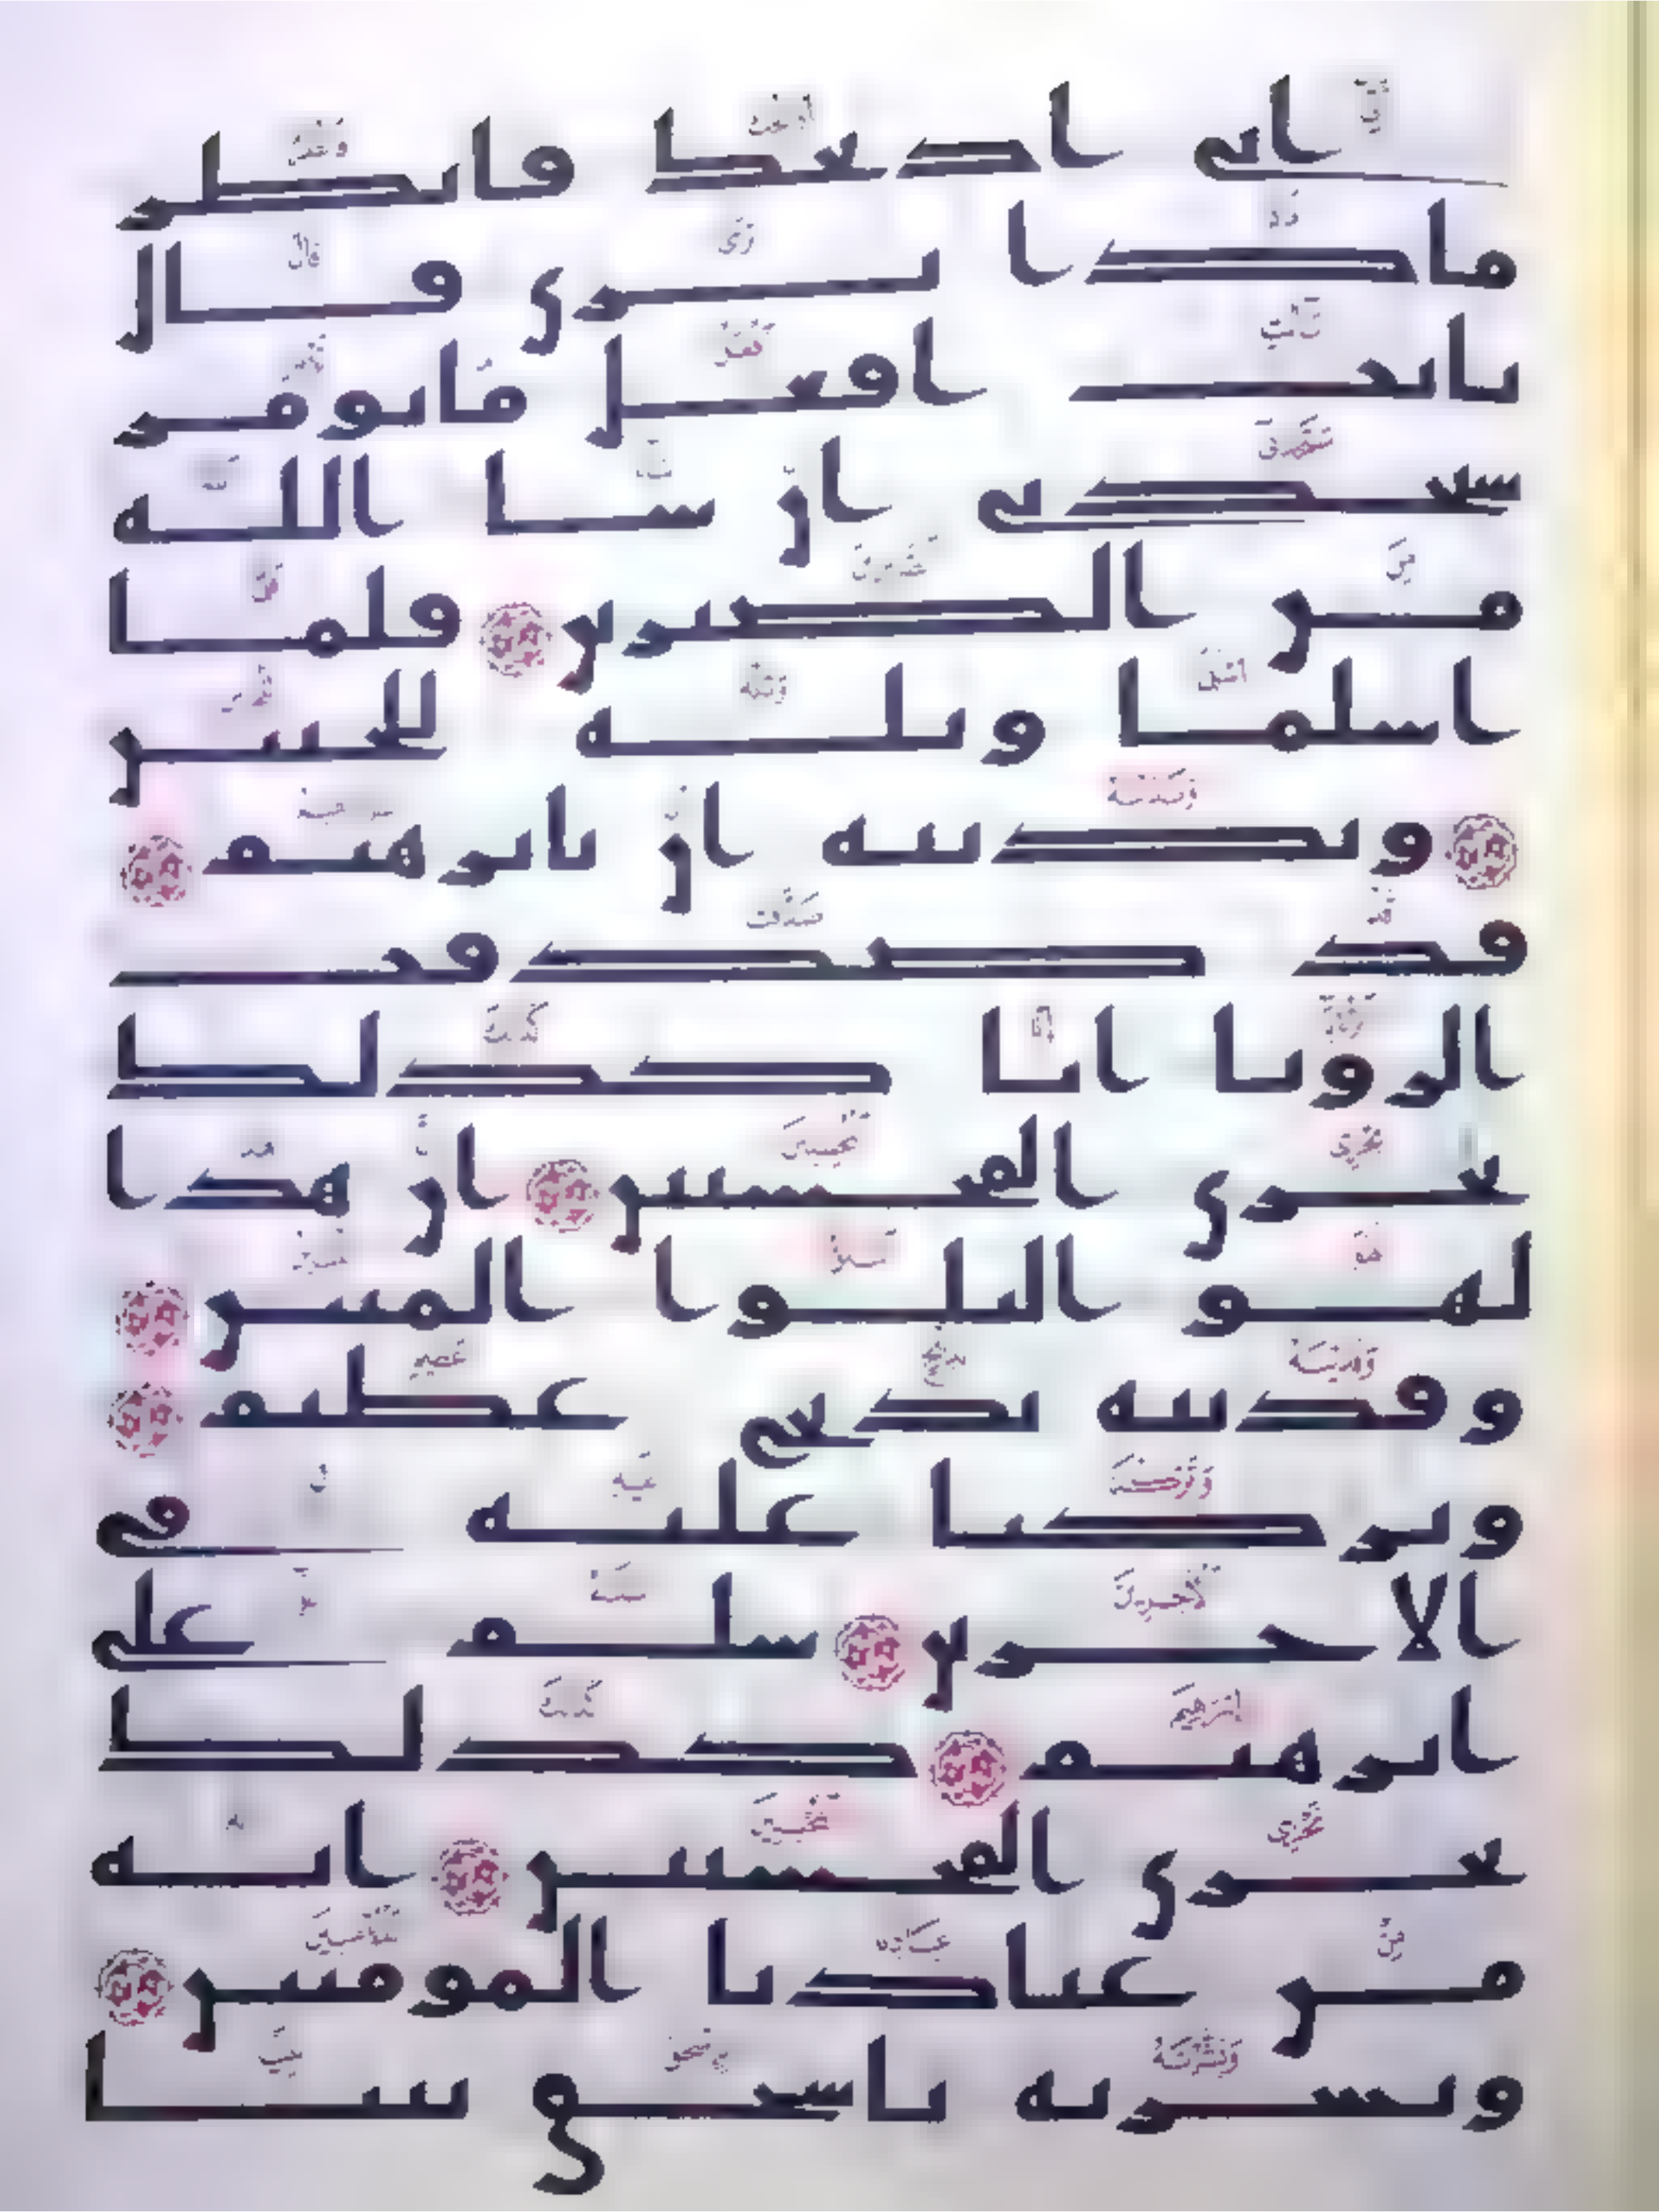 انى اذبحك فانظر
ماذا ترى قال
يابت افعل ما تومر
ستجدنى ان شا الله
من الصبرين فلما
اسلما وتله للجبين
وندينه ان يابرهيم
قد صدقت
الرويا انا كذلك
نجزى المحسنين ان هذا
لهو البلوا المبين
وفدينه بذبح عظيم
وتركنا عليه فى
الاخرين سلم على
ابرهيم كذلك
نجزى المحسنين انه
من عبادنا المومنين
وبشرنه باسحق نبيا